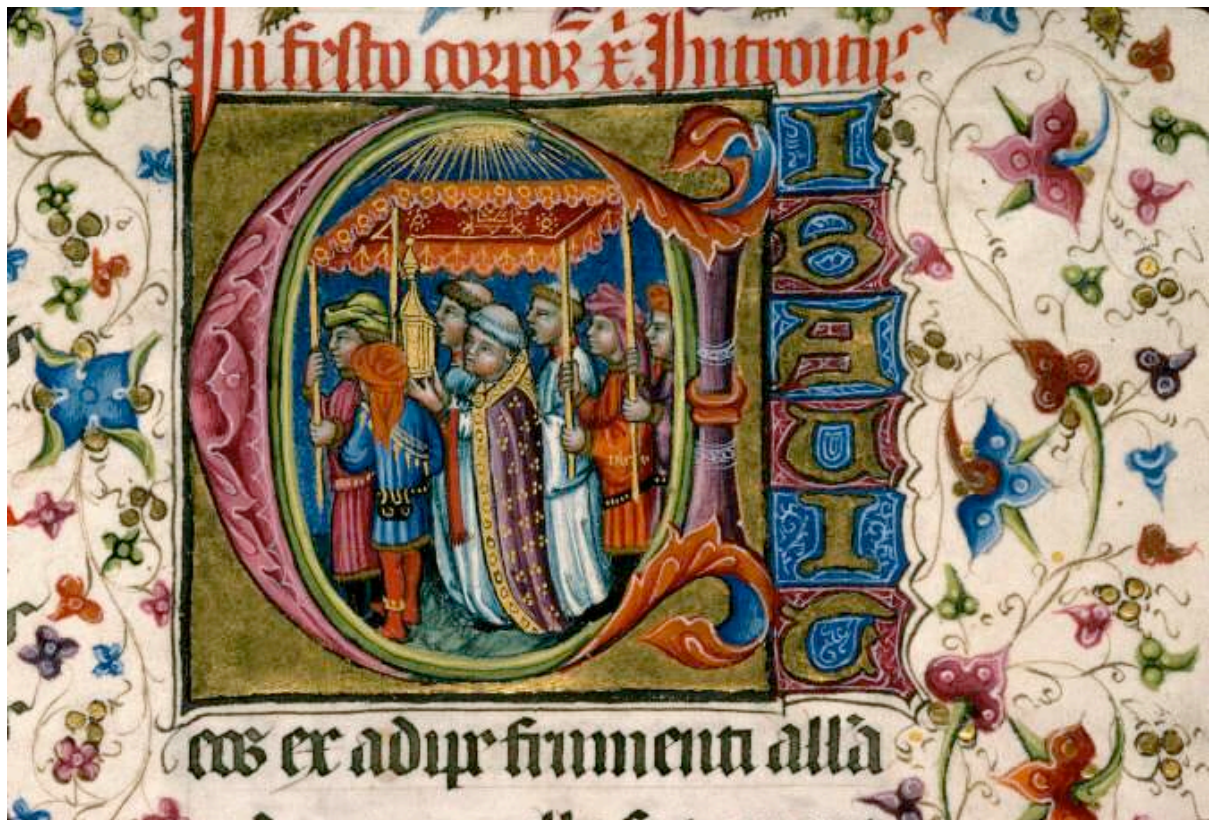 In festo corpor̄ x̄. Introitus
CIBAUIT
eos ex adipe frumenti all̄a